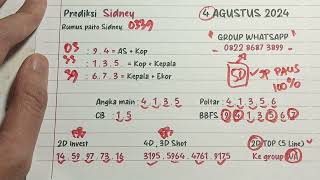 Prediksi Sidney
Rumus paito Sidney: 0339
4 AGUSTUS 2024
"GROUP WHATSAPP"
0822 8687 3899
03 : 9.4 = AS + Kop
33 : 1.3.5. = Kop + Kepala
39 : 6.7.3 = Kepala + Ekor
5D JP PAUS
100%
Angka main : 4.1.3.5
Poltar : 4.1.3.5.6
CB : 1.5
BBFS :
2D Invest
4D, 3D Shot
2D TOP (5 Line)
14.59.97.73.16
3195.5964.4761.9175
Ke group WA